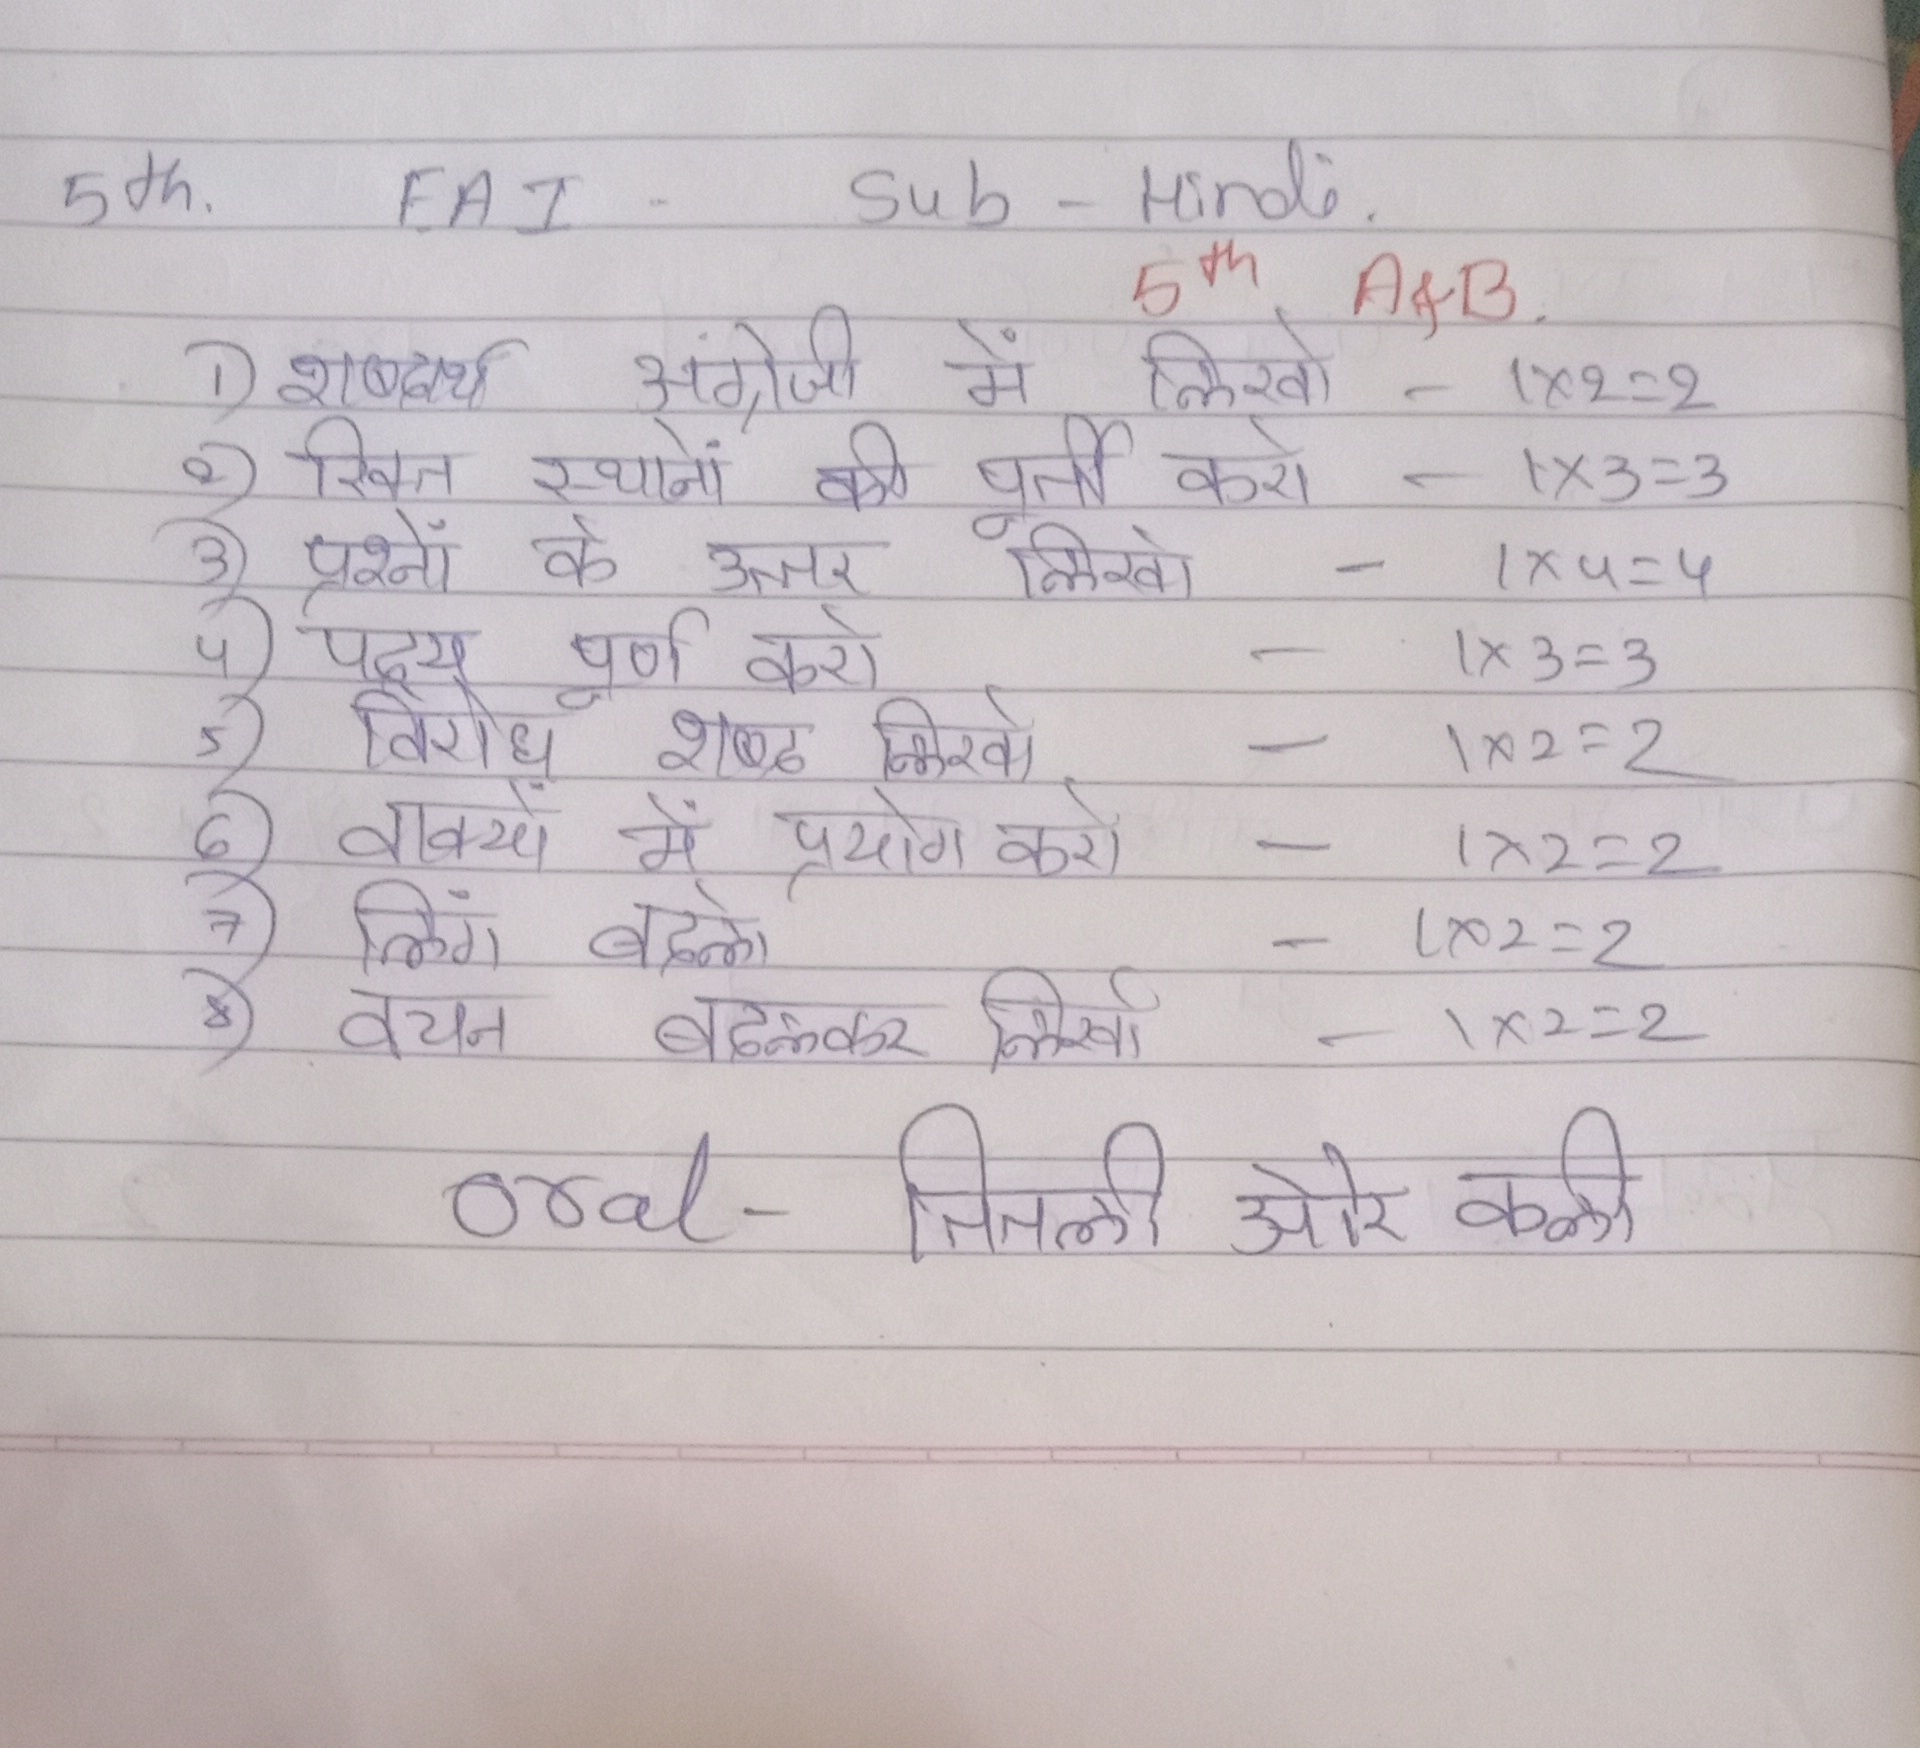 5th. FA I - Sub - Hindi.
5th A&B.
1) शब्दार्थ अंग्रेजी में लिखो - 1x2=2
2) रिक्त स्थानों की पूर्ती करो - 1x3=3
3) प्रश्नों के उत्तर लिखो - 1x4=4
4) पद्य पूर्ण करो - 1x3=3
5) विरोध शब्द लिखो - 1x2=2
6) वाक्यों में प्रयोग करो - 1x2=2
7) लिंग बदलो - 1x2=2
8) वचन बदलकर लिखो - 1x2=2
Oral - तितली और कली